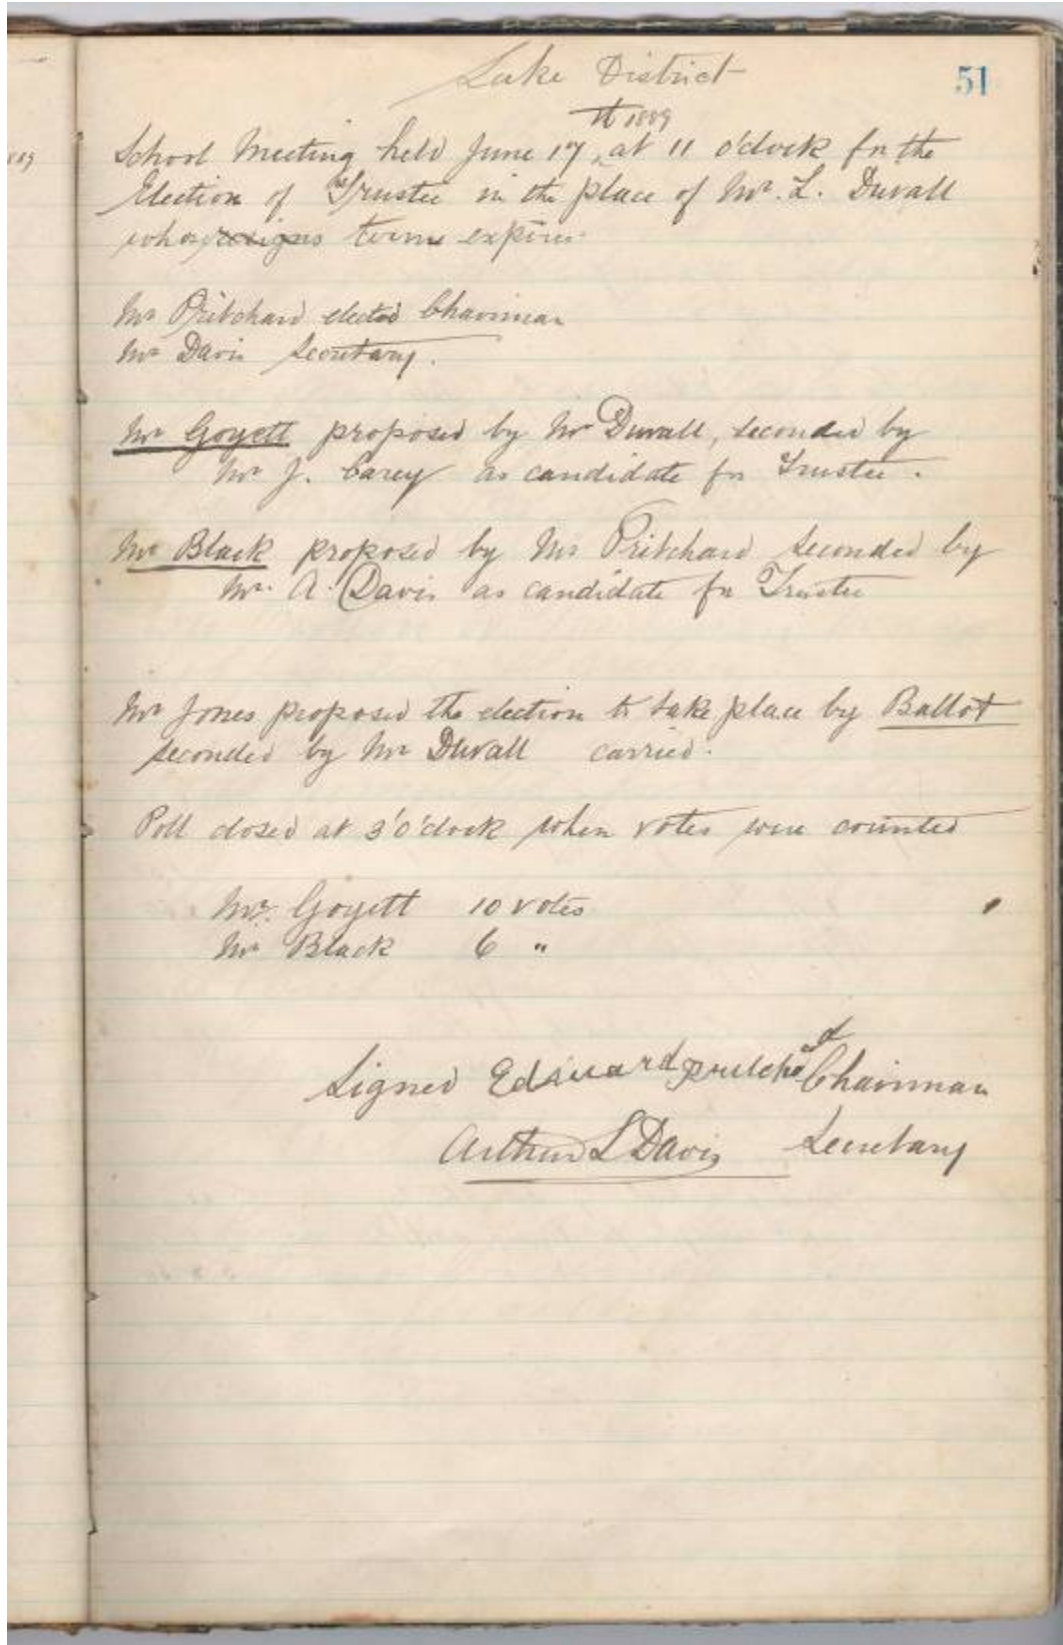 Lake District
51
th 1889
School Meeting held June 17, at 11 o'clock for the
Election of Trustee in the place of Mr. L. Duvall
whos resigns term expires
Mr Pritchard elected Chairman
Mr Davis Secretary.
Mr Goyett proposed by Mr Duvall, seconded by
Mr J. Carey as candidate for Trustee.
Mr Black proposed by Mr Pritchard seconded by
Mr. A. Davis as candidate for Trustee
Mr Jones proposed the election to take place by Ballot
seconded by Mr Duvall carried.
Poll closed at 3'o'clock when votes were counted
Mr. Goyett 10 votes
Mr Black 6 "
Signed Edward Pritchard Chairman
Arthur L Davis Secretary